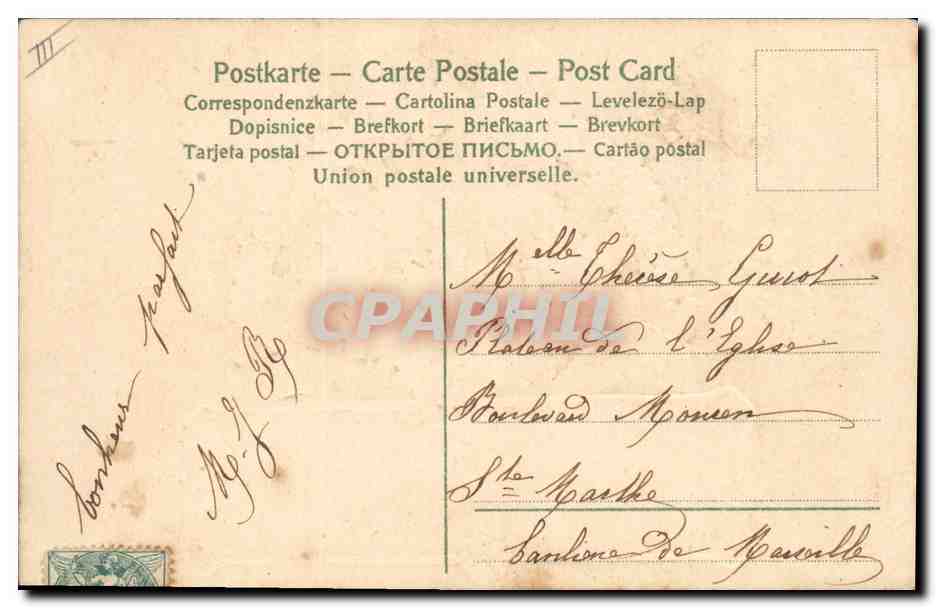 III
Postkarte — Carte Postale — Post Card
Correspondenzkarte — Cartolina Postale — Levelezö-Lap
Dopisnice — Brefkort — Briefkaart — Brevkort
Tarjeta postal — ОТКРЫТОЕ ПИСЬМО. — Cartão postal
Union postale universelle.
bonheur parfait
M. J. B
CPAPHIL
Melle Thérèse Guiot
Plateau de l'Eglise
Boulevard
Ste Marthe
banlieue de Marseille